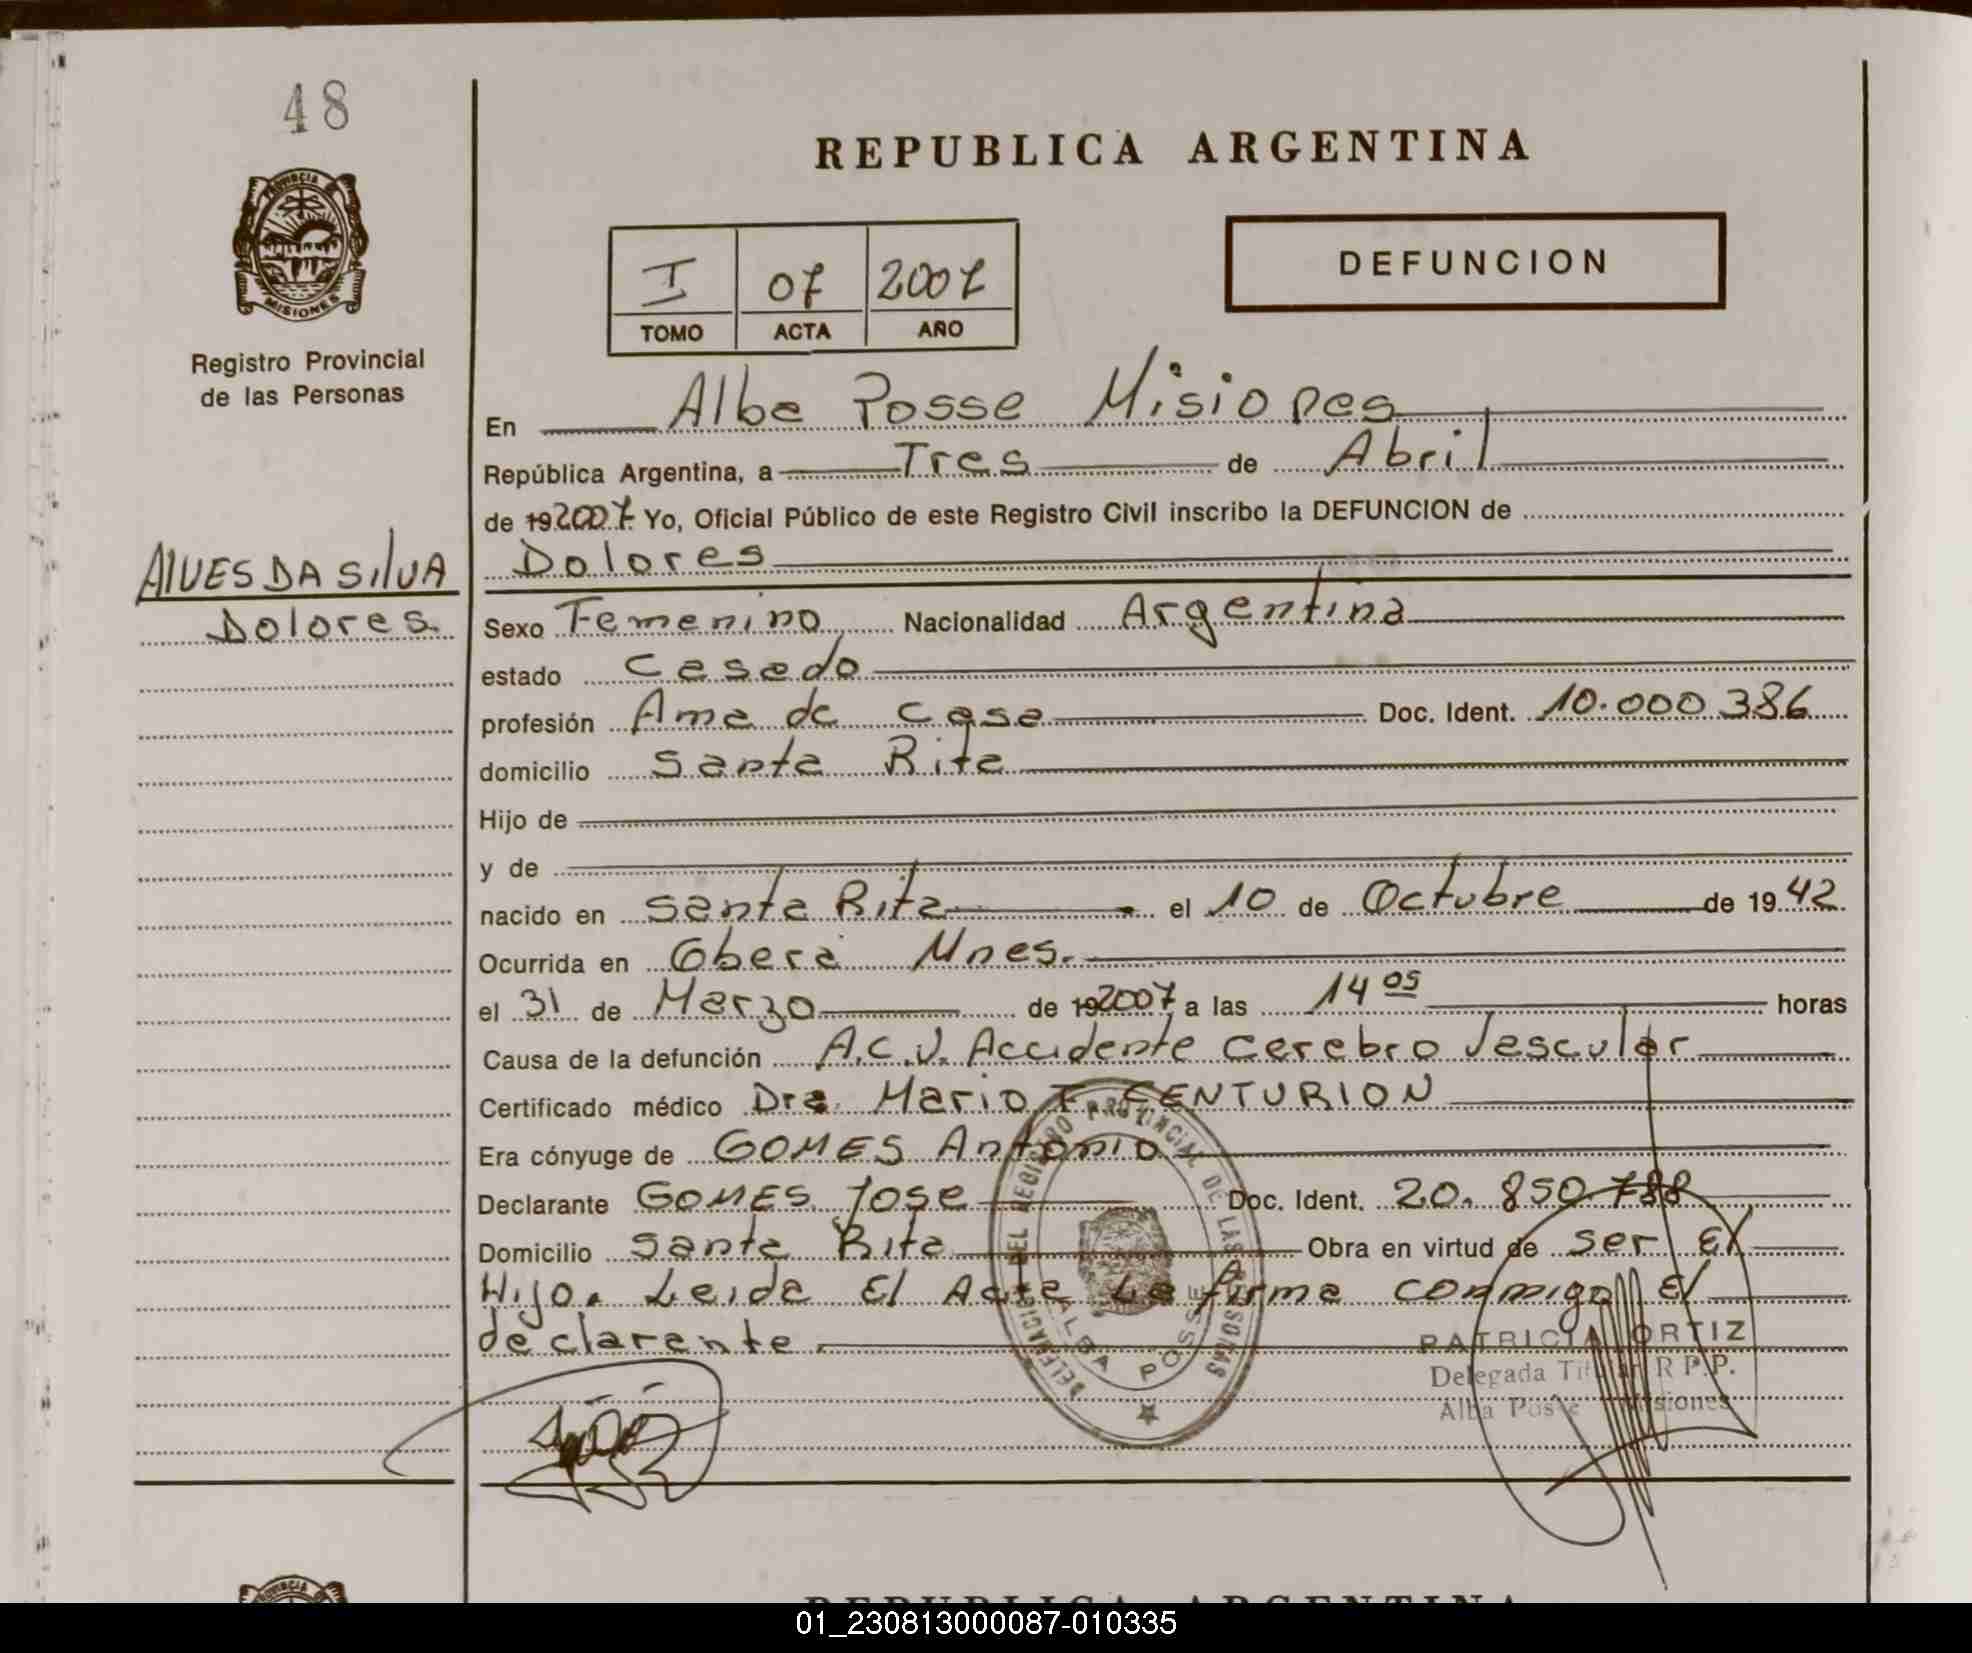 48
REPUBLICA ARGENTINA
PROVINCIA DE
MISIONES
Registro Provincial
de las Personas
I 07 2007
TOMO ACTA AÑO
DEFUNCION
En Alba Posse Misiones
República Argentina, a Tres de Abril
de 19 2007. Yo, Oficial Público de este Registro Civil inscribo la DEFUNCION de
Alves DA SilvA
Dolores
Dolores.
Sexo Femenino Nacionalidad Argentina
estado Casado
profesión Ama de casa Doc. Ident. 10.000 386
domicilio Santa Rita
Hijo de
y de
nacido en Santa Rita el 10 de Octubre de 19 42
Ocurrida en Obera Mnes.
el 31 de Marzo de 19 2007 a las 14 05 horas
Causa de la defunción A.C.V. Accidente cerebro Vascular
Certificado médico Dra. Mario F CENTURION
Era cónyuge de GOMES Antonio
Declarante GOMES Jose Doc. Ident. 20. 850 788
Domicilio Santa Rita Obra en virtud de ser El
Hijo. Leida El Acta La firma conmigo El
declarante
DELEGACION DEL REGISTRO PROVINCIAL DE LAS PERSONAS
ALBA POSSE
PATRICIA ORTIZ
Delegada Titular R.P.P.
Alba Posse Misiones
REPUBLICA ARGENTINA
01_230813000087-010335